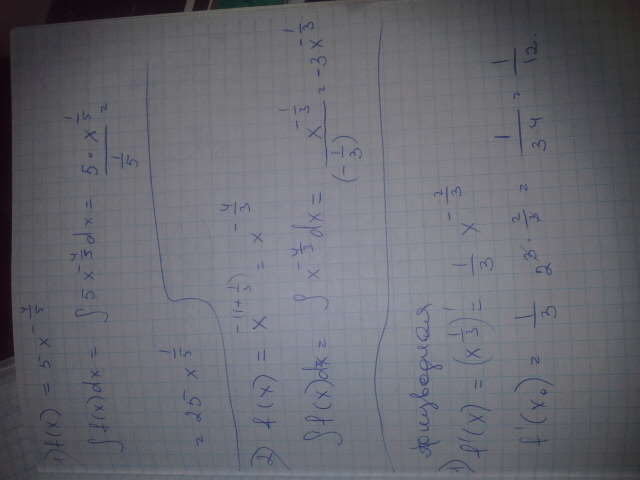 1) f(x) = 5 x^{-4/5}
∫ f(x)dx = ∫ 5 x^{-4/5} dx = \frac{5 · x^{1/5}}{1/5} =
= 25 x^{1/5}
2) f(x) = x^{-(1+1/3)} = x^{-4/3}
∫ f(x)dx = ∫ x^{-4/3} dx = \frac{x^{-1/3}}{(-1/3)} = -3 x^{-1/3}
Призводная
1) f'(x) = (x^{1/3})' = \frac{1}{3} x^{-2/3}
f'(x₀) = \frac{1}{3} 2^{3 · 2/3} = \frac{1}{3·4} = \frac{1}{12}.